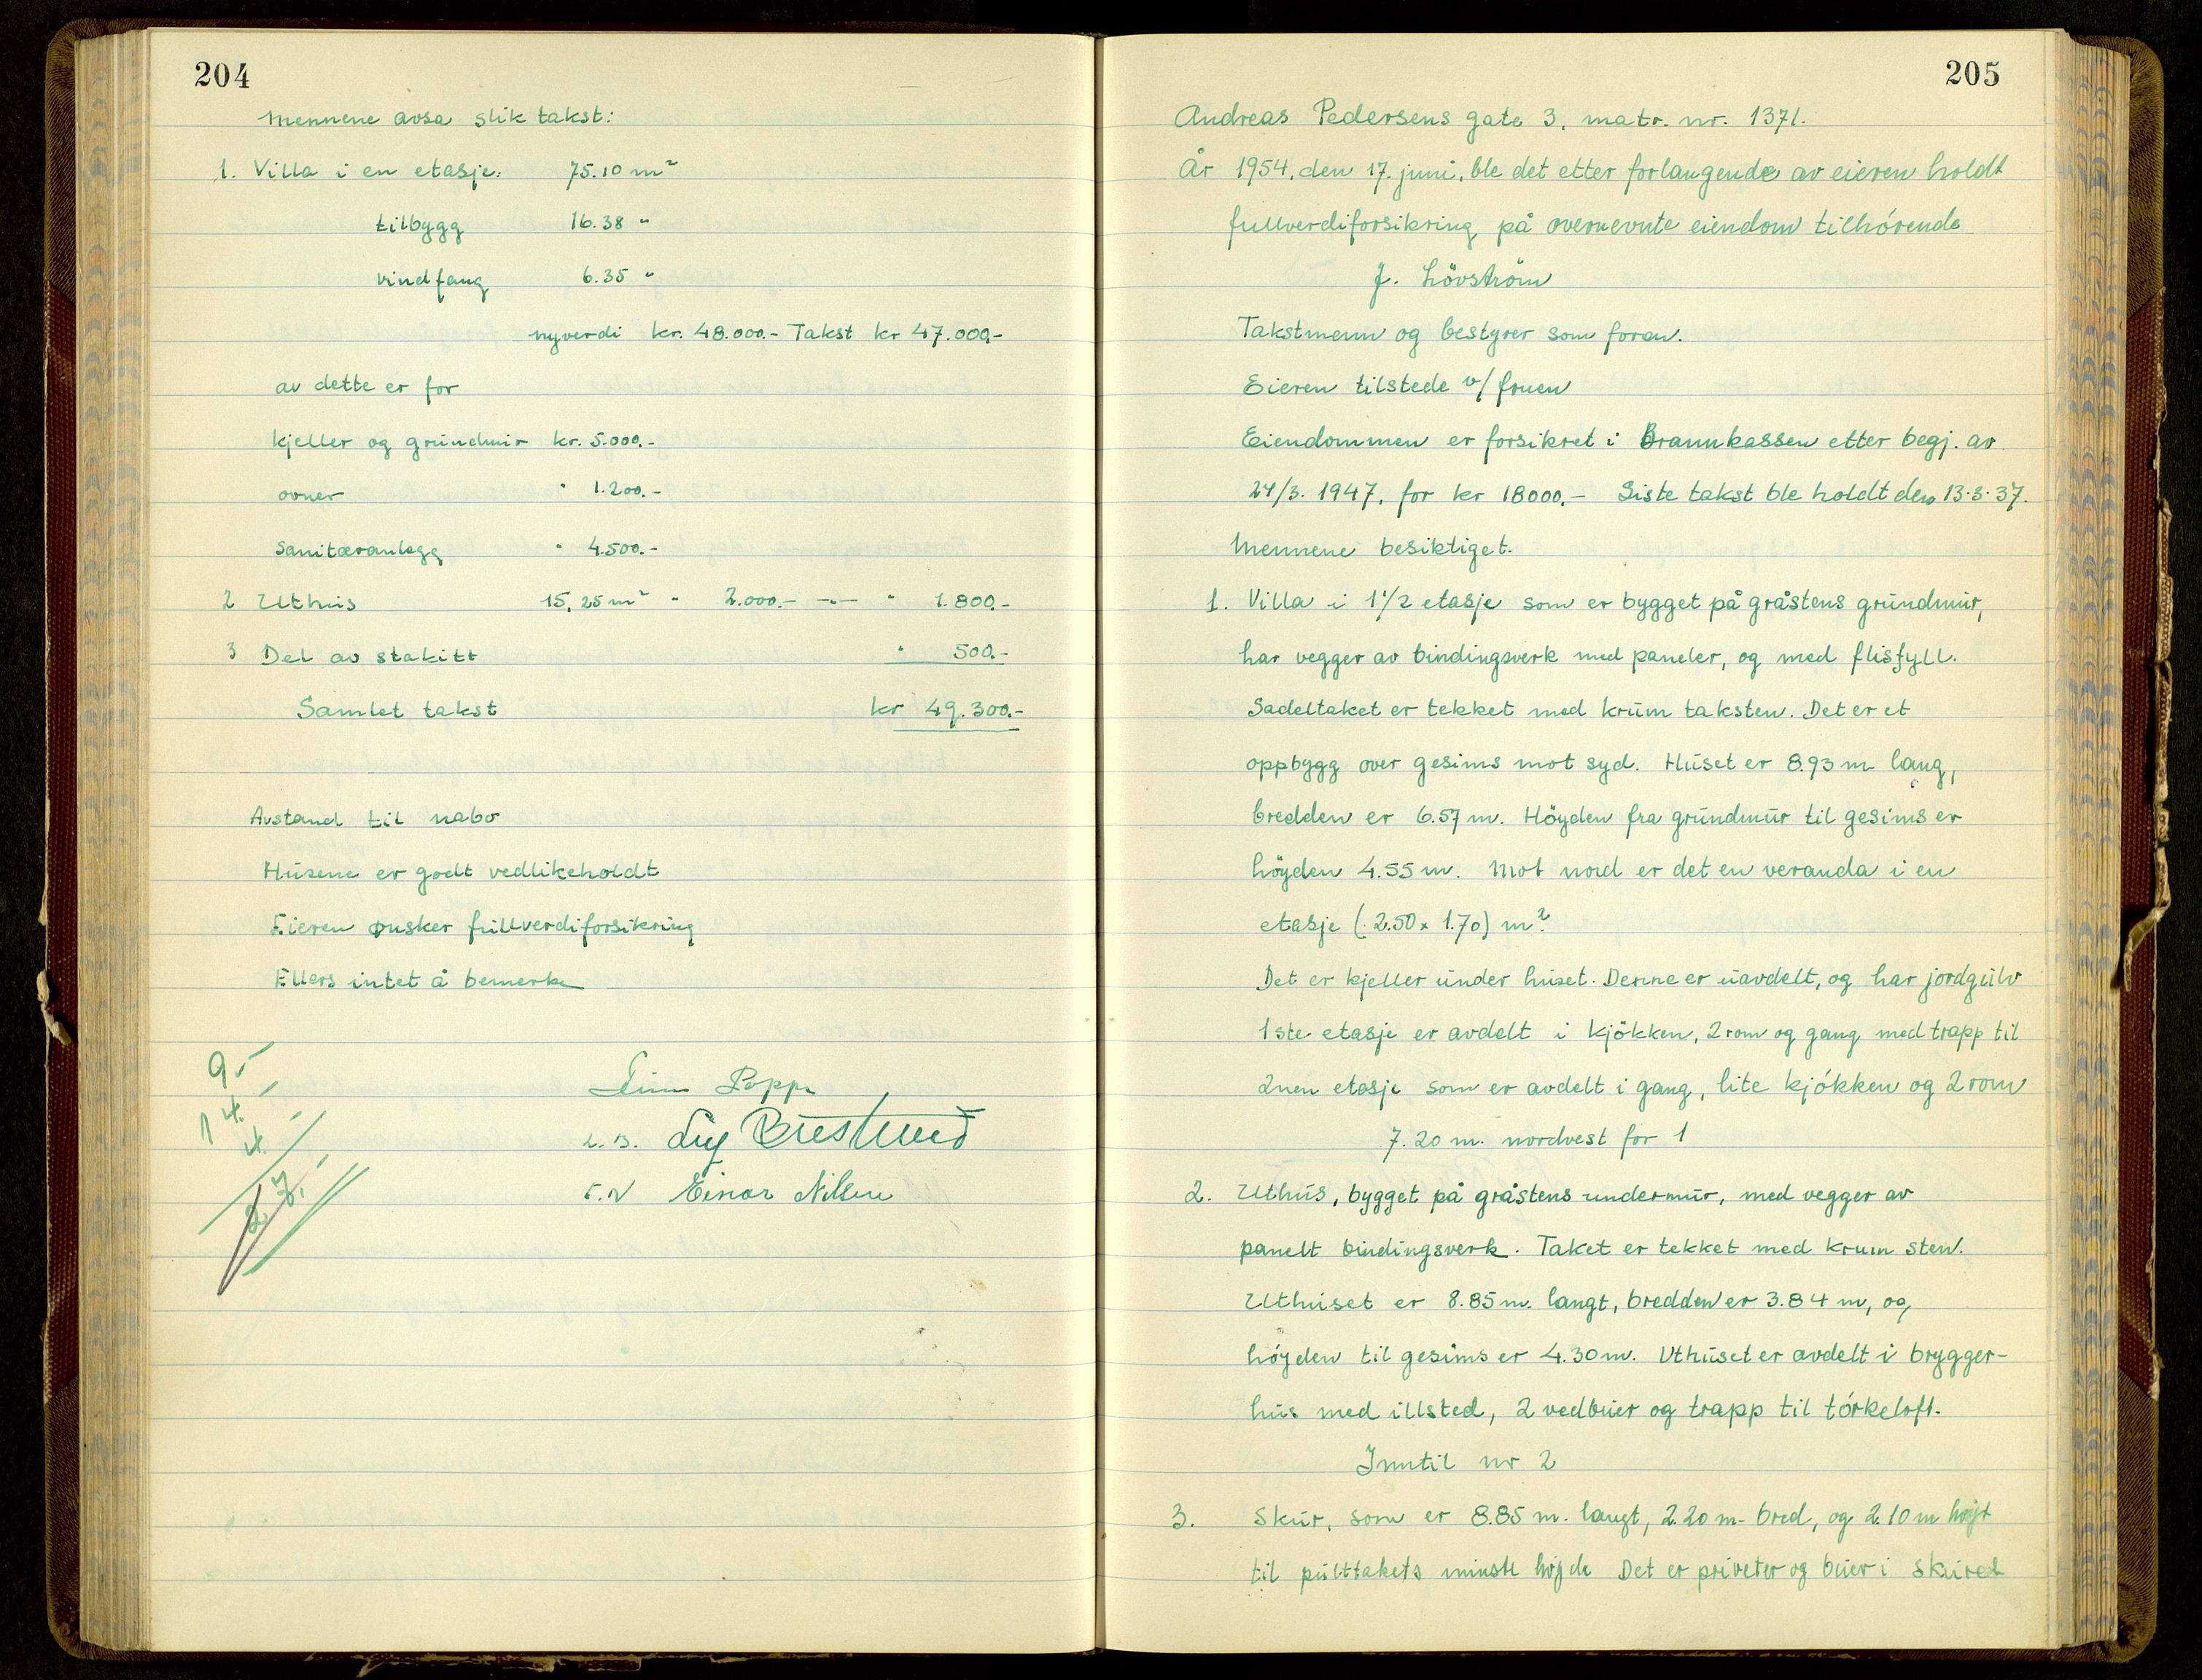 204
Mennene avsa slik takst:
1. Villa i en etasje. 75.10 m²
tilbygg 16.38 "
vindfang 6.35 "
nyverdi kr. 48.000.- Takst kr 47.000.-
av dette er for
kjeller og grundmur kr. 5.000.-
ovner " 1.200.-
Sanitæranlegg " 4.500.-
2 Uthus 15,25 m² " 2.000.- -"- " 1.800.-
3 Del av stakitt " 500.-
Samlet takst kr 49.300.-
Avstand til nabo
Husene er godt vedlikeholdt
Eieren ønsker fullverdiforsikring
Ellers intet å bemerke
9.-
14.-
4.-
27.-
Einar Nilsen
205
Andreas Pedersens gate 3, matr. nr. 1371.
År 1954, den 17. juni, ble det etter forlangende av eieren holdt
fullverdiforsikring på overnevnte eiendom tilhórende
J. Lövström
Takstmenn og bestyrer som foran.
Eieren tilstede v/ fruen
Eiendommen er forsikret i Brannkassen etter begj. av
24/3. 1947, for kr 18000.- Siste takst ble holdt den 13.3.37.
Mennene besiktiget.
1. Villa i 1 1/2 etasje som er bygget på gråstens grundmur,
har vegger av bindingsverk med paneler, og med flisfyll.
Sadeltaket er tekket med krum taksten. Det er et
oppbygg over gesims mot syd. Huset er 8.93 m lang,
bredden er 6.57 m. Höyden fra grundmur til gesims er
höyden 4.55 m. Mot nord er det en veranda i en
etasje (2.50 x 1.70) m².
Det er kjeller under huset. Denne er uavdelt, og har jordgulv
1ste etasje er avdelt i kjökken, 2 rom og gang med trapp til
2nen etasje som er avdelt i gang, lite kjókken og 2 rom
7.20 m. nordvest for 1
2. Uthus, bygget på gråstens undermur, med vegger av
panelt bindingsverk. Taket er tekket med krum sten.
Uthuset er 8.85 m. langt, bredden er 3.84 m, og
hóyden til gesims er 4.30 m. Uthuset er avdelt i brygger-
hus med illsted, 2 vedbuer og trapp til tórkeloft.
Inntil nr 2
3. Skur, som er 8.85 m. langt, 2.20 m. bred, og 2.10 m högt
til pulttakets minste höjde Det er priveter og buer i skuret